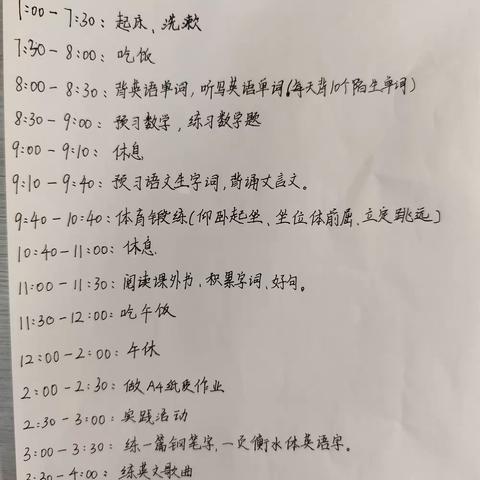 7:00-7:30: 起床、洗漱
7:30-8:00: 吃饭
8:00-8:30: 背英语单词，听写英语单词(每天背10个陌生单词)
8:30-9:00: 预习数学，练习数学题
9:00-9:10: 休息
9:10-9:40: 预习语文生字词，背诵文言文。
9:40-10:40: 体育锻练(仰卧起坐、坐位体前屈、立定跳远)
10:40-11:00: 休息
11:00-11:30: 阅读课外书、积累字词、好句。
11:30-12:00: 吃午饭
12:00-2:00: 午休
2:00-2:30: 做A4纸质作业
2:30-3:00: 实践活动
3:00-3:30: 练一篇钢笔字，一页衡水体英语字。
3:30-4:00: 练英文歌曲